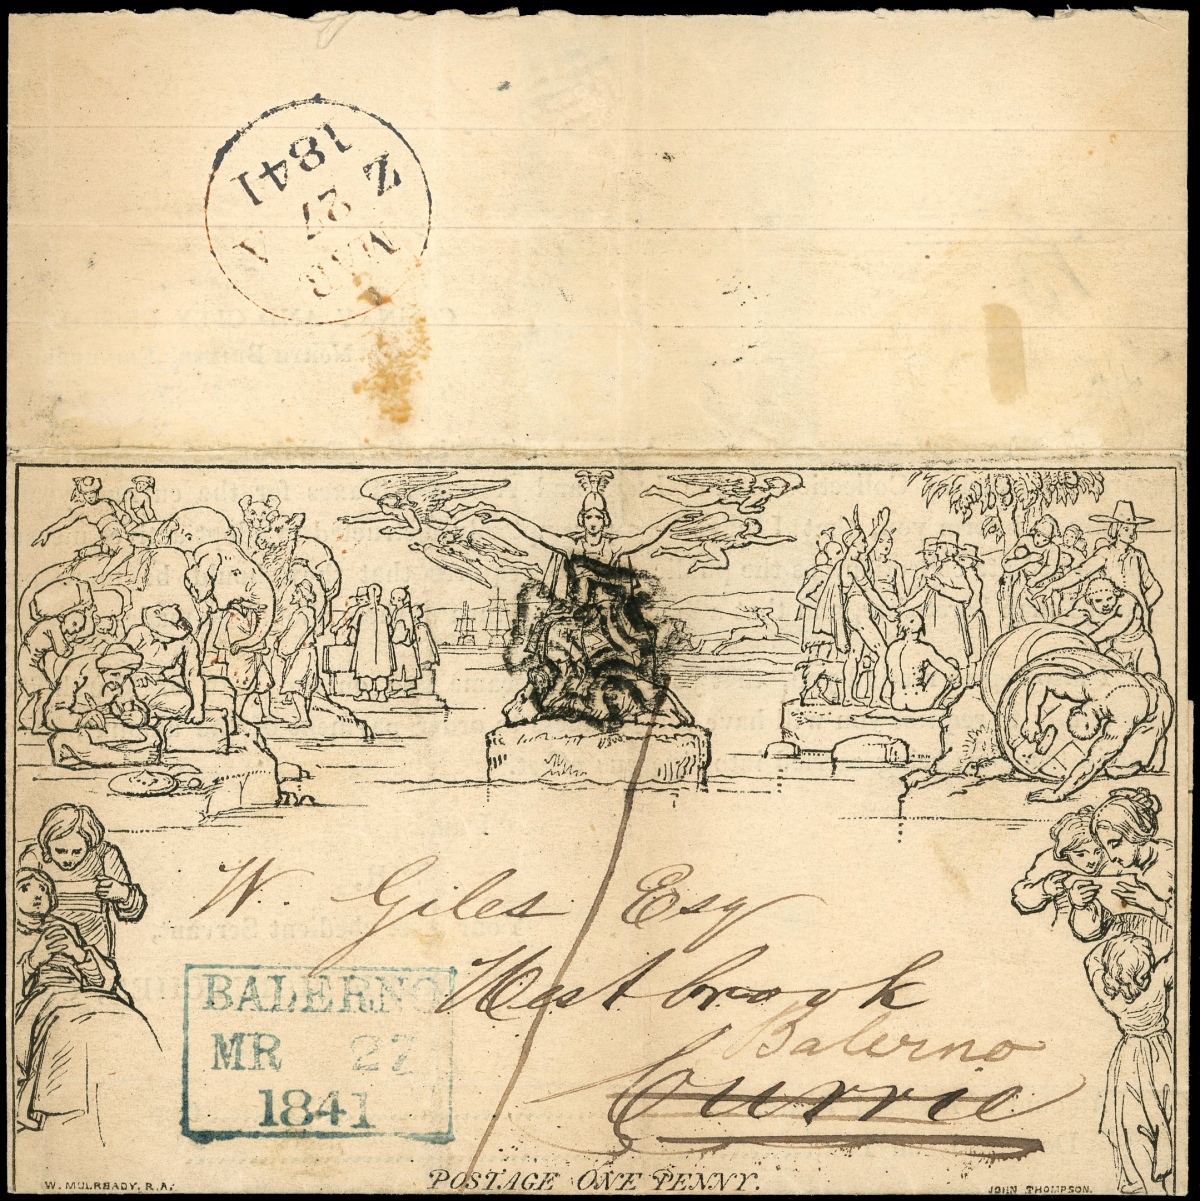 Z
1841
27
MAR
A
W. Giles Esq
Westbrook
Balerno
Currie
BALERNO
MR 27
1841
POSTAGE ONE PENNY.
W. MULREADY. R.A.
JOHN THOMPSON.